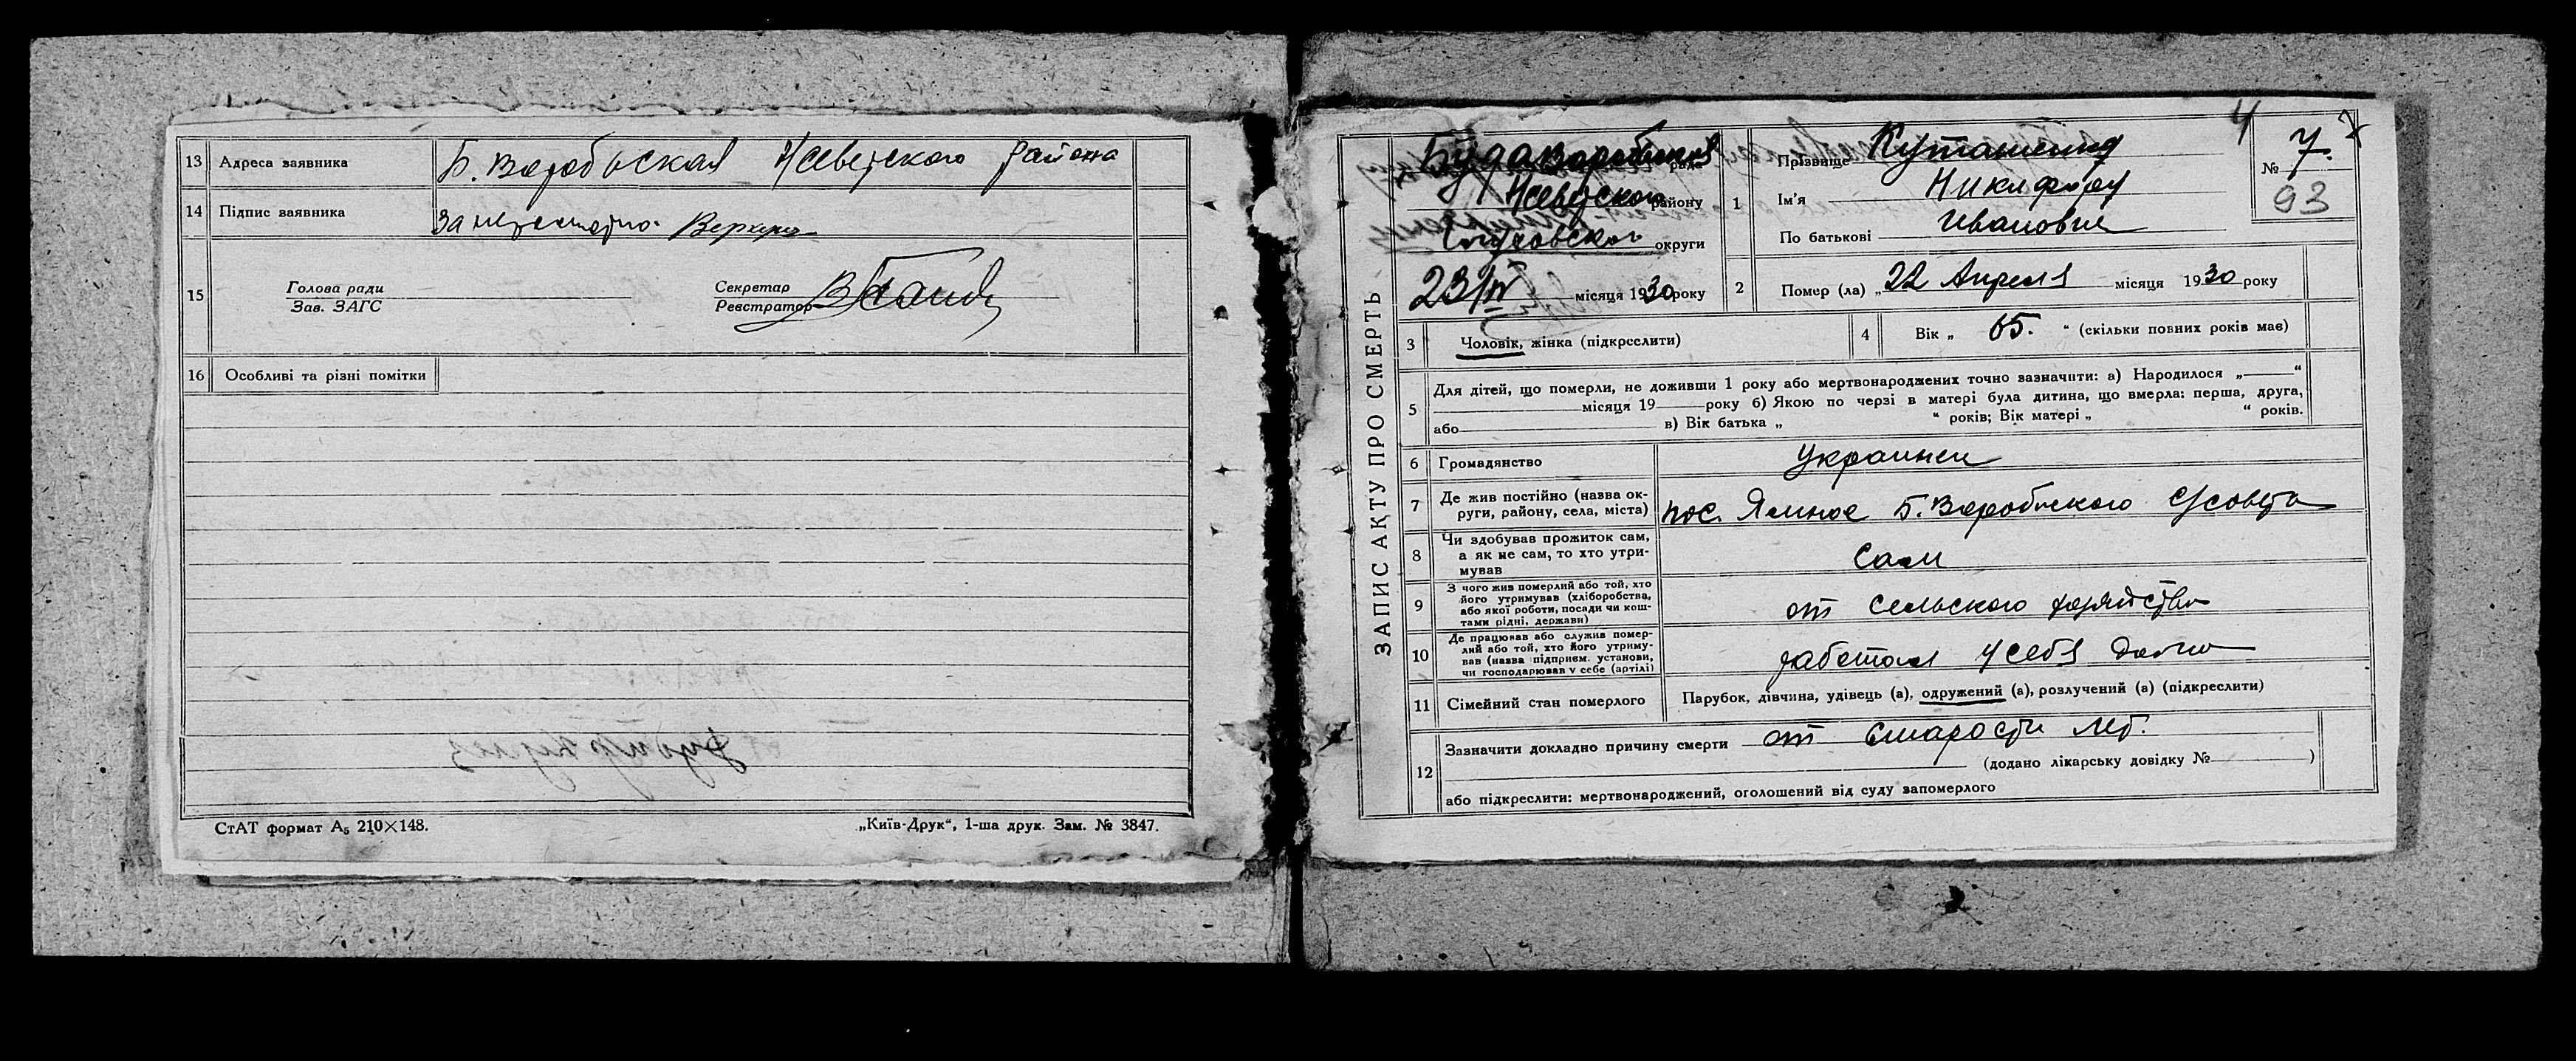 13 Адреса заявника Б. Воробьская Нсеверского района
14 Підпис заявника За неграмотно.
15 Голова ради
Зав. ЗАГС
Секретар
Реєстратор
16 Особливі та різні помітки
СтАТ формат А₅ 210×148.
„Київ-Друк“, 1-ша друк. Зам. № 3847.
ЗАПИС АКТУ ПРО СМЕРТЬ
4
Буда Воробьевск ради
Нсеверского району
округи
23/IV місяця 1930 року
1 Прізвище
Ім'я Никифор
По батькові Иванович
№ 7.
93
2 Помер (ла) „ 22 Апреля місяця 1930 року
3 Чоловік, жінка (підкреслити)
4 Вік „ 65. “ (скільки повних років має)
5 Для дітей, що померли, не доживши 1 року або мертвонароджених точно зазначити: а) Народилося „ “
місяця 19 року б) Якою по черзі в матері була дитина, що вмерла: перша, друга,
або в) Вік батька „ “ років; Вік матері „ “ років.
6 Громадянство Украинец
7 Де жив постійно (назва ок-
руги, району, села, міста) пос. Ямное Б. Воробьского с/совета
8 Чи здобував прожиток сам,
а як не сам, то хто утри-
мував Сам
9 З чого жив померлий або той, хто
його утримував (хліборобства,
або якої роботи, посади чи кош-
тами рідні, держави) от сельского хозяйства
10 Де працював або служив помер-
лий або той, хто його утриму-
вав (назва підприєм. установи,
чи господарював у себе (артілі) работал у себя дома
11 Сімейний стан померлого Парубок, дівчина, удівець (а), одружений (а), розлучений (а) (підкреслити)
12 Зазначити докладно причину смерти от старости лет.
(додано лікарську довідку № )
або підкреслити: мертвонароджений, оголошений від суду запомерлого